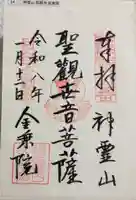 奉拝 神霊山
聖観世音菩薩
令和八年
一月十二日 金乗院